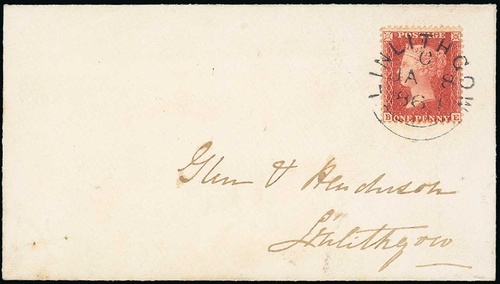 POSTAGE
LINLITHGOW
C
JA 8
1861
ONE PENNY
D E
Glen & Henderson
Linlithgow